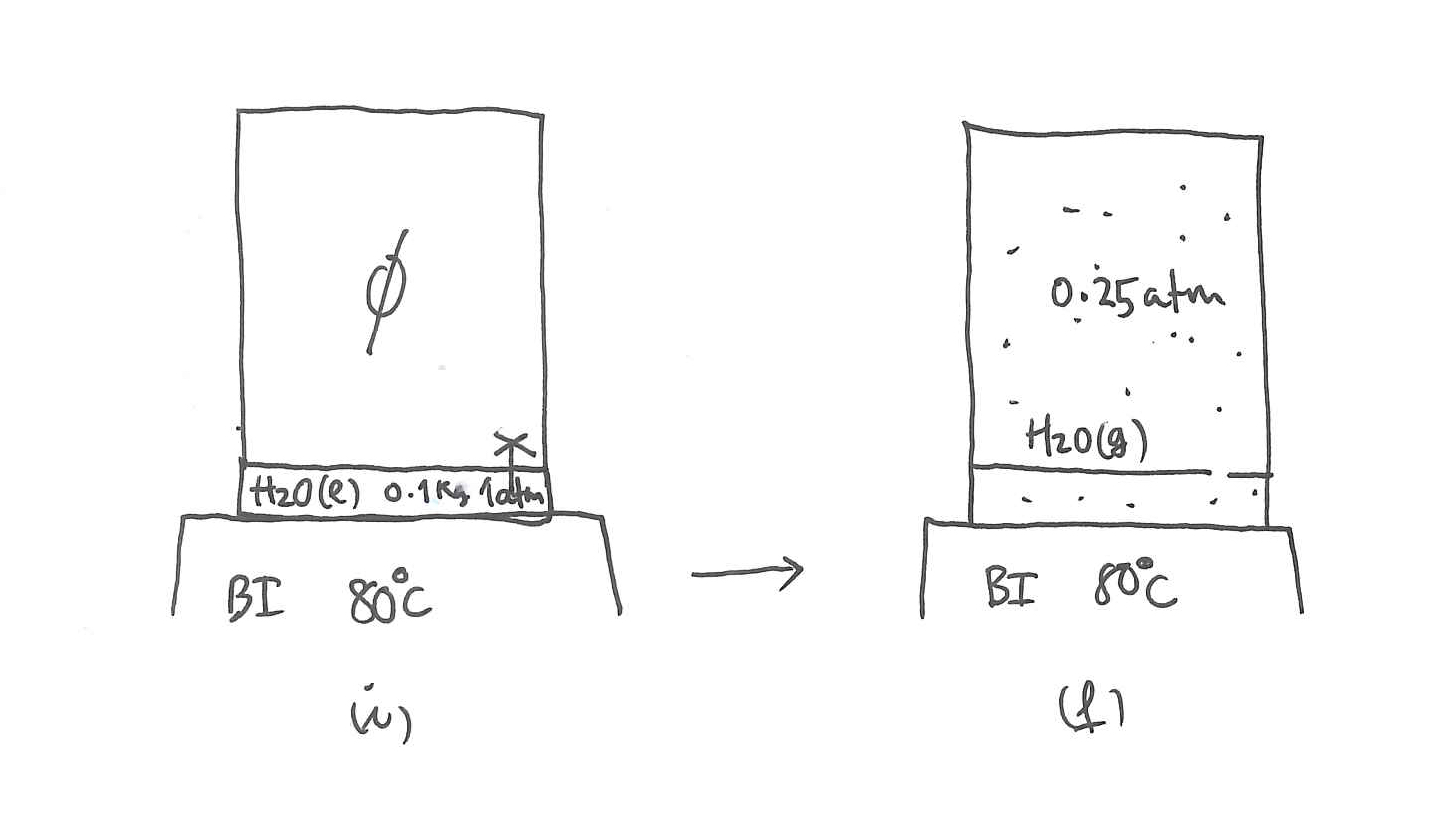 ∅
H2O(l) 0.1Kg 1atm
BI 80°C
(i)
0.25atm
H2O(g)
BI 80°C
(f)